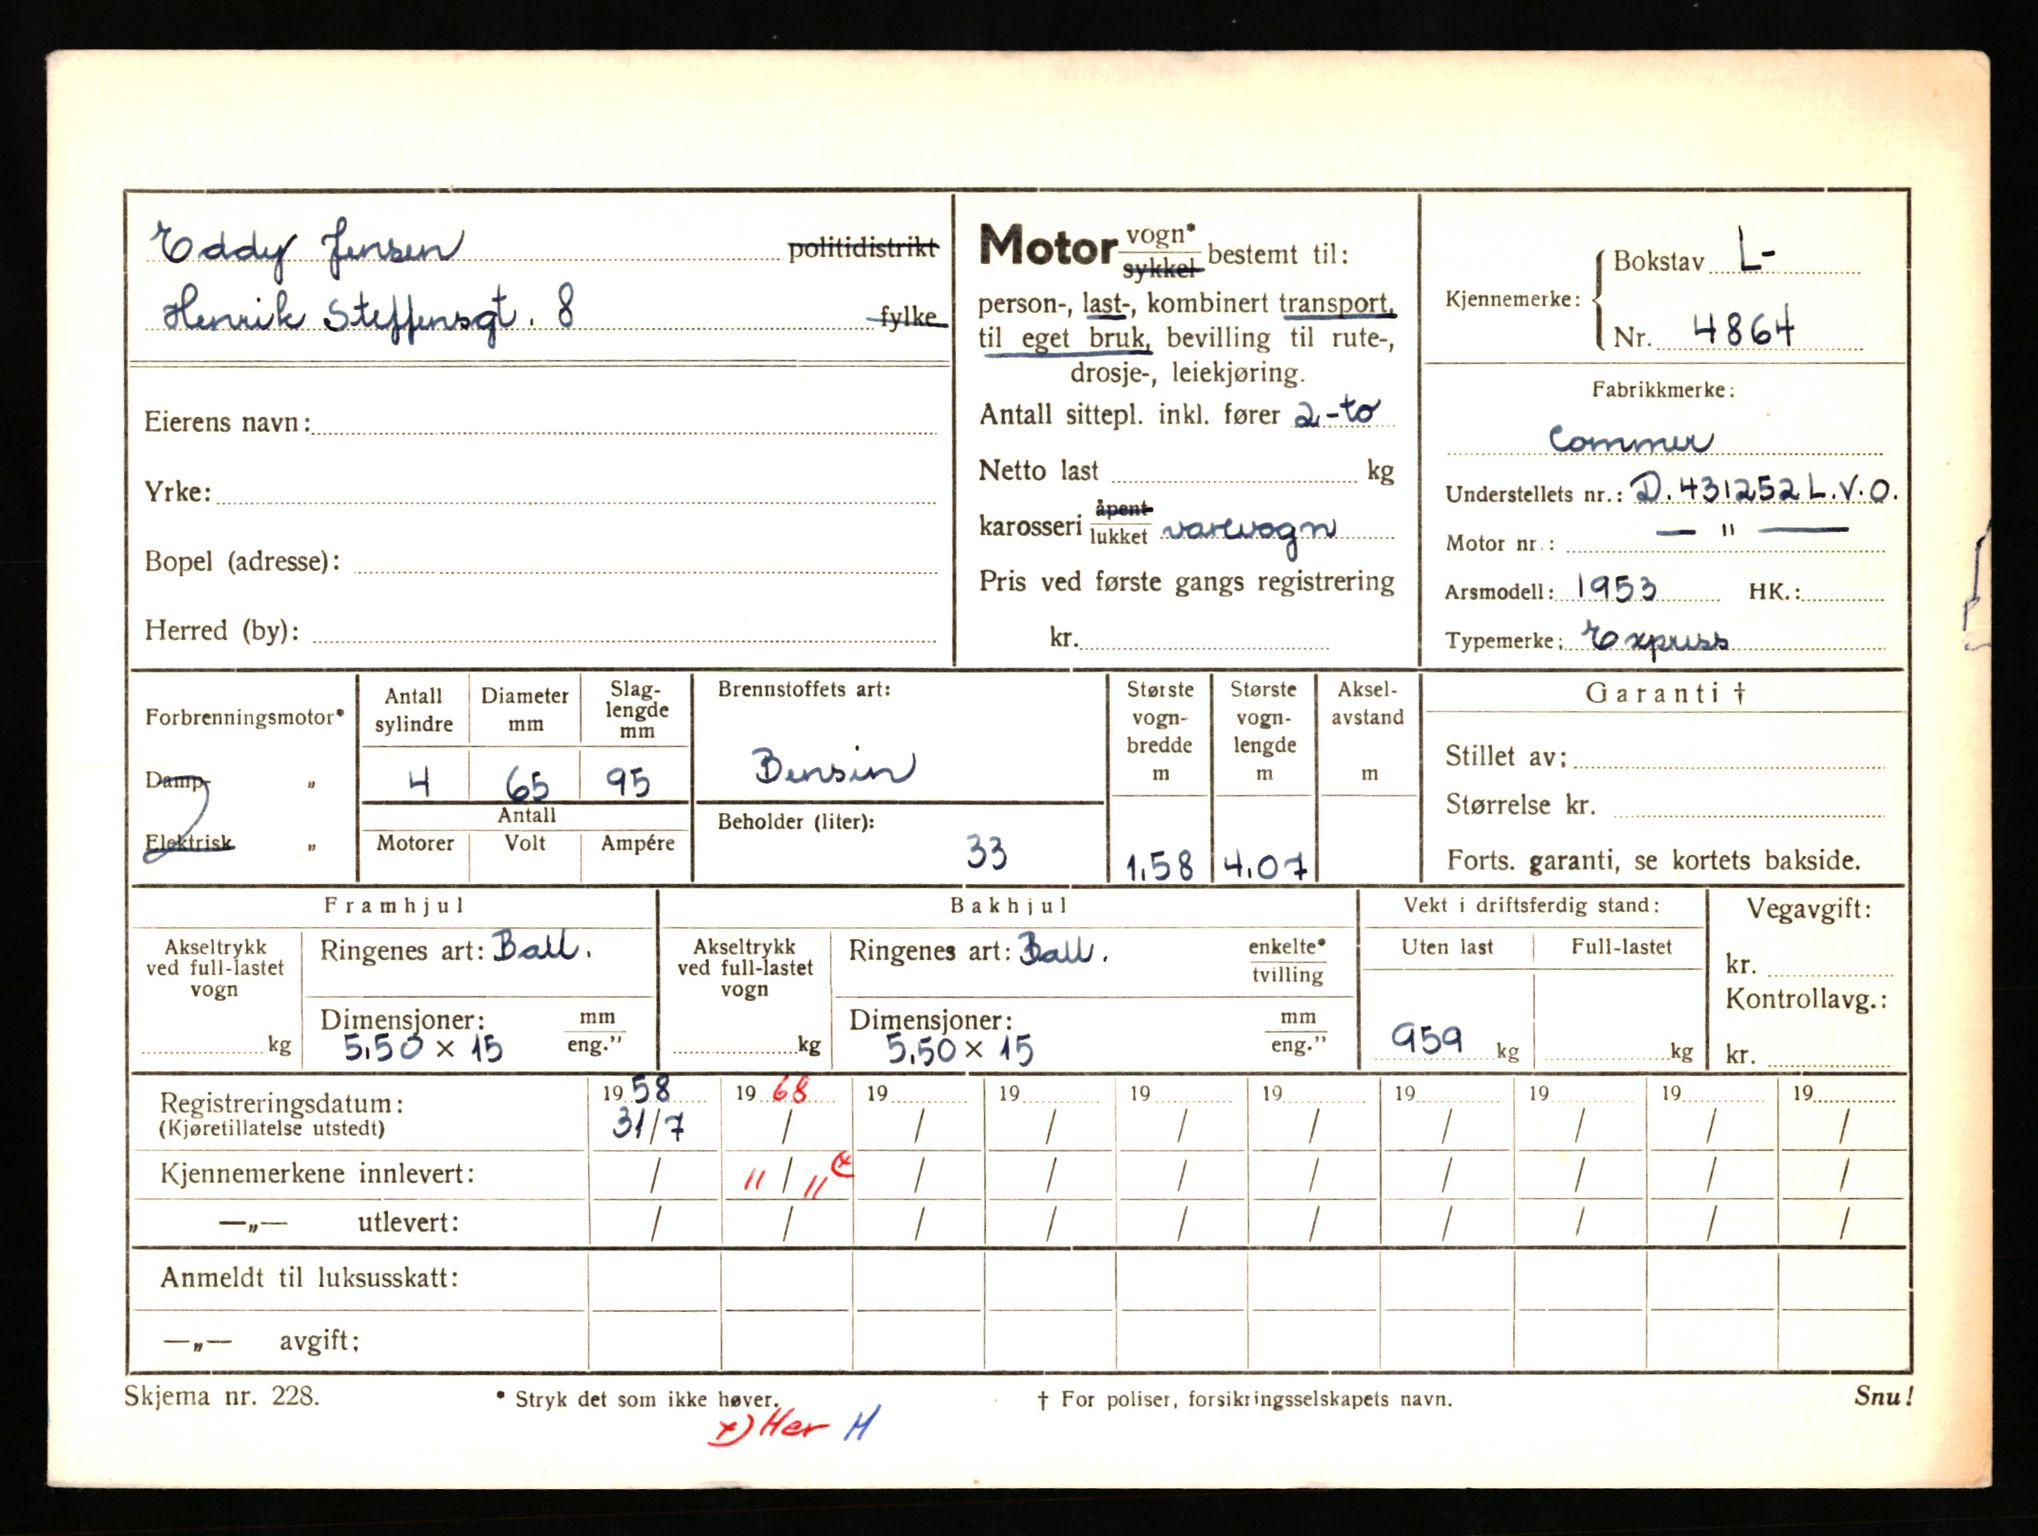 Eddy Jensen politidistrikt
Henrik Steffensgt. 8 fylke
Eierens navn:
Yrke:
Bopel (adresse):
Herred (by):
Motor vogn* sykkel bestemt til:
person-, last-, kombinert transport,
til eget bruk, bevilling til rute-,
drosje-, leiekjøring.
Antall sittepl. inkl. fører 2-to
Netto last kg
karosseri åpent lukket varevogn
Pris ved første gangs registrering
kr.
Kjennemerke: Bokstav L-
Nr. 4864
Fabrikkmerke:
Commer
Understellets nr.: D. 431252 L.V.O.
Motor nr.: — " —
Arsmodell: 1953 HK.:
Typemerke: Express
Forbrenningsmotor*
Damp- „
Elektrisk „
Antall sylindre
Diameter mm
Slag-lengde mm
4 65 95
Antall
Motorer Volt Ampére
Brennstoffets art:
Bensin
Beholder (liter):
33
Største vogn-bredde m
1.58
Største vogn-lengde m
4.07
Aksel-avstand m
Garanti †
Stillet av:
Størrelse kr.
Forts. garanti, se kortets bakside.
Framhjul
Akseltrykk ved full-lastet vogn
kg
Ringenes art: Ball.
Dimensjoner: mm eng."
5.50 x 15
Bakhjul
Akseltrykk ved full-lastet vogn
kg
Ringenes art: Ball. enkelte* tvilling
Dimensjoner: mm eng."
5.50 x 15
Vekt i driftsferdig stand:
Uten last Full-lastet
959 kg kg
Vegavgift:
kr.
Kontrollavg.:
kr.
Registreringsdatum: 1958 1968 19 19 19 19 19 19 19 19
(Kjøretillatelse utstedt) 31/7 / / / / / / / / /
Kjennemerkene innlevert: / " / " (x / / / / / / / /
—„— utlevert: / / / / / / / / / /
Anmeldt til luksusskatt:
—„— avgift:
Skjema nr. 228. * Stryk det som ikke høver. † For poliser, forsikringsselskapets navn. Snu!
x) Her H